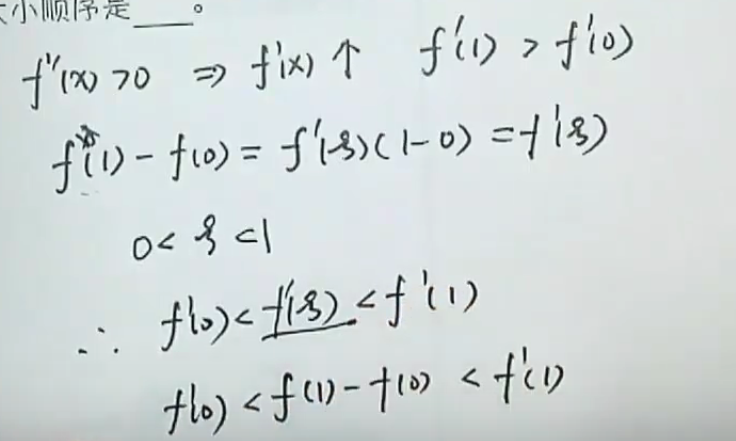 大小顺序是____。
f''(x) > 0 ⇒ f'(x) ↑ f'(1) > f'(0)
f(1) - f(0) = f'(ξ)(1-0) = f'(ξ)
0 < ξ < 1
∴ f'(0) < f'(ξ) < f'(1)
f'(0) < f(1) - f(0) < f'(1)